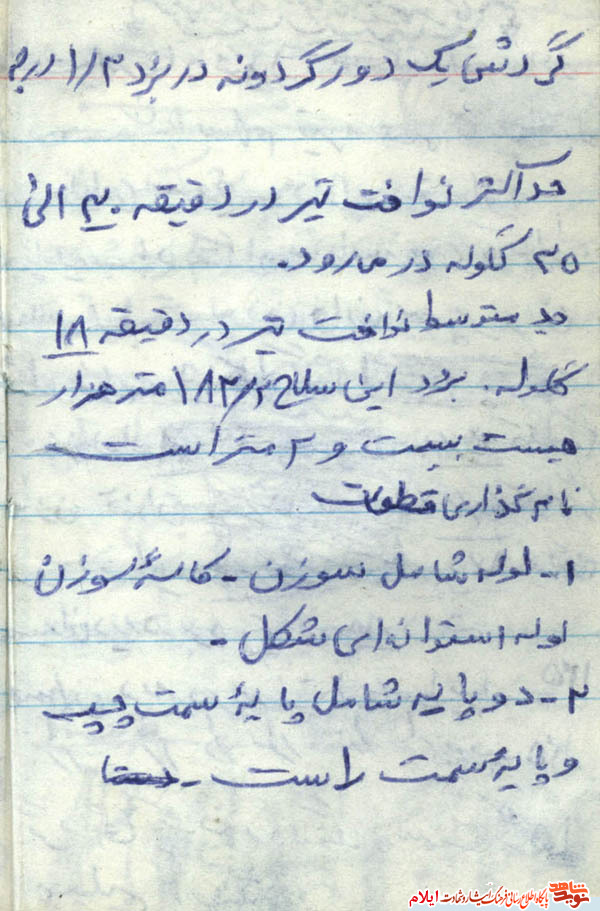 گردش یک دور گردونه در برد ۱/۳ درجه
حداکثر نواخت تیر در دقیقه ۳۰ الی
۳۵ گلوله در می‌رود.
حد متوسط نواخت تیر در دقیقه ۱۸
گلوله. برد این سلاح ۱۸۲۲ متر هزار
هیست بیست و ۲ متر است
نام گذاری قطعات
۱- لوله شامل سوزن - کاسهٔ سوزن
لوله استوانه‌ای شکل -
۲- دو پایه شامل پایهٔ سمت چپ
و پایهٔ سمت راست -
نوید شاهد پایگاه اطلاع رسانی فرهنگ ایثار و شهادت ایلام